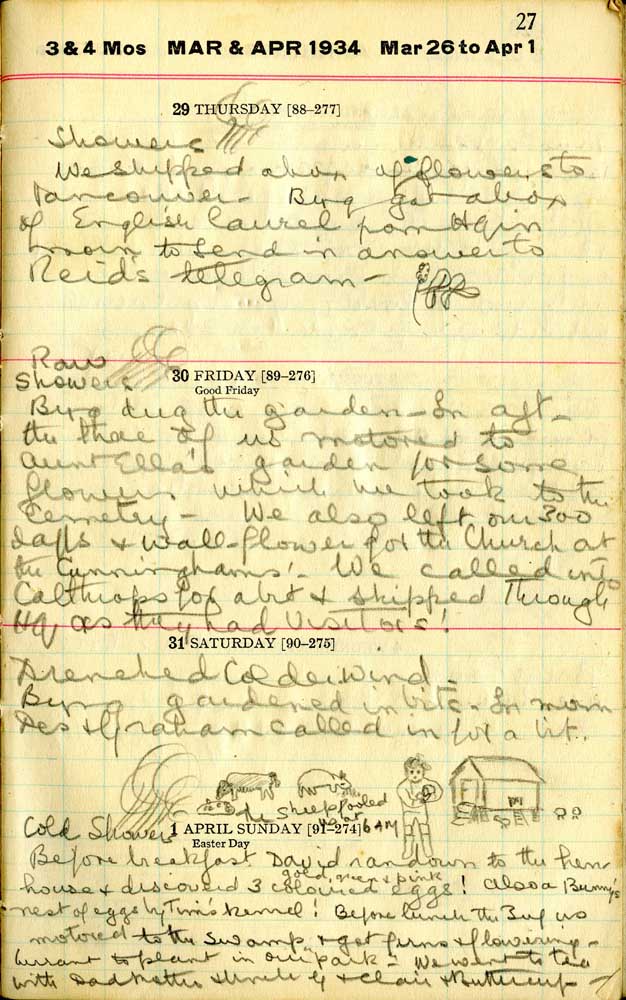 27
3 & 4 Mos MAR & APR 1934 Mar 26 to Apr 1
29 THURSDAY [88–277]
Showers
We shipped a box of flowers to
Vancouver - got a box
of English laurel from
morn to send in answer to
Reid's telegram -
Raw
Showers
30 FRIDAY [89–276]
Good Friday
dug the garden - In aft -
the three of us motored to
Aunt Ella's garden for some
flowers which we took to the
Cemetry - We also left our 300
daffs & wall-flower for the Church at
the Cunninghams' - We called into
Calthrops for a bit & skipped through
HQ as they had Visitors!
31 SATURDAY [90–275]
Drenched Colder wind -
gardened in bits - In morn
Des & Graham called in for a bit.
the sheep fooled
us at 6 AM
Cold Showers
1 APRIL SUNDAY [91–274]
Easter Day
Before breakfast David ran down to the hen
gold, green & pink
house & discovered 3 coloured eggs! Also a Bunny's
nest of eggs by Tim's Kennel! Before lunch the 3 of us
motored to the Swamp & got ferns & flowering -
currant to plant in our park - We went to tea
with Dad & Clair & Buttercup -